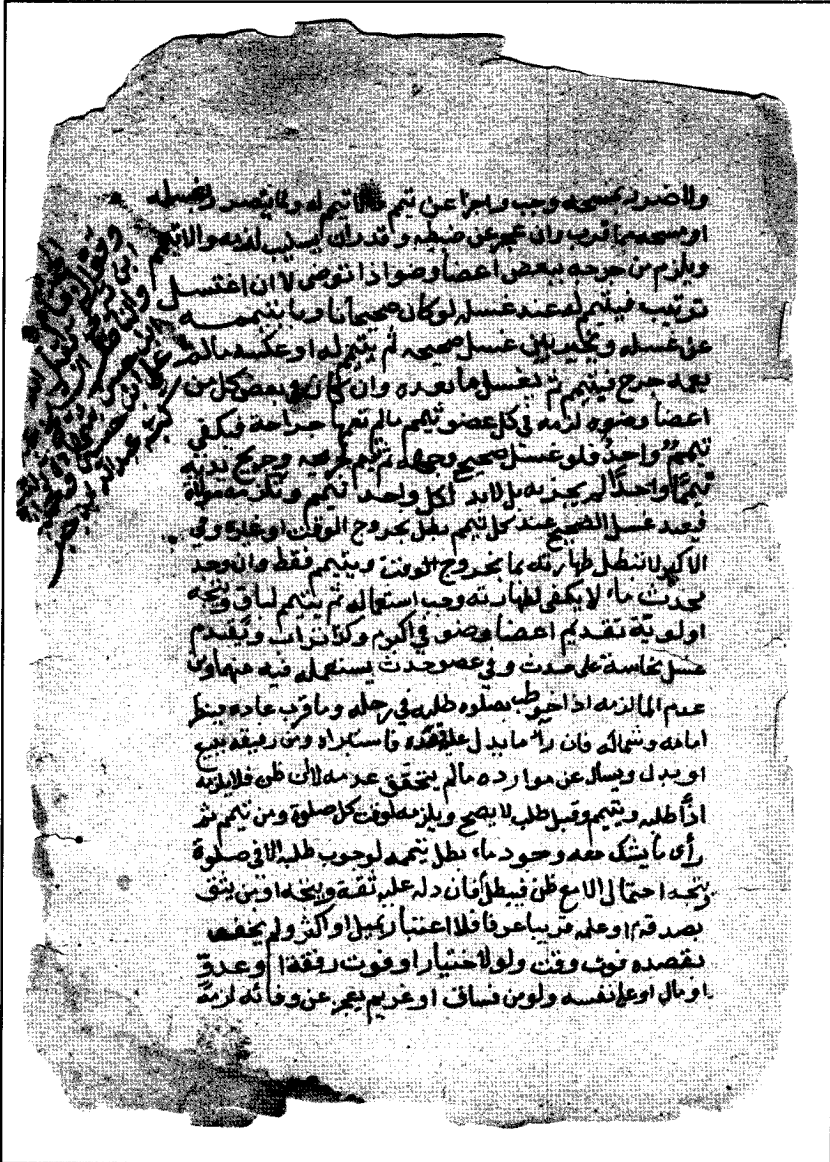 ولا ضرر بمسحه وجب واجزا عن تيمم والا تيمم له ولما يتضرر بغسله
او مسحه مما قرب وان عجز عن ضبطه وقدر ان يستنيب لزمه والا تيمم
ويلزم من جرحه ببعض اعضا وضوا اذا توضى لا ان اغتسل
ترتيب فيتيمم له عند غسله لو كان صحيحا ما بتيممه
عن غسله ويخير بين غسل صحيح ثم يتيمم له او عكسه مالم
يعمه جرح فيتيمم ثم يغسل ما بعده وان كان في بعض كل من
اعضا وضوه لزمه في كل عضو تيمم مالم تعمها جراحة فيكفي
تيمم واحد فلو غسل صحيح وجهه ثم تيمم لجريحه وجريح يديه
تيمما واحدا لم يجزيه بل لابد لكل واحد تيمم ويلزمه موالاة
فيعيد غسل الصحيح عند كل تيمم بطل بخروج الوقت او غيره وفي
الاكبر لا تبطل طهارته بما بخروج الوقت ويتيمم فقط وان وجد
محدث ماء لا يكفي لطهارته وجب استعماله ثم يتيمم لباق ويتجه
اولوية تقديم اعضا وضو في اكبر وكذا تراب ويقدم
غسل نجاسة على حدث وفي عضو حدث يستعمله فيه عنهما ومن
عدم الما لزمه اذا خوطب بصلوة طلبه في رحله وما قرب عادة فينظر
امامه وشماله فان رأى ما يدل عليه قصده فاستبراه ومن رفيقه ببيع
او بدل ويسال عن موارده مالم يتحقق عدمه لا ان ظن فلا يلزمه
اذا طلبه ويتيمم وقبل طلب لا يصح ويلزمه لوقت كل صلوة ومن تيمم ثم
رأى ما يشك معه وجود ماء بطل تيممه لوجوب طلبه لا في صلوة
ويتجه احتمال الا مع ظن فيبطل فان دله عليه ثقة ويتجه او من يثق
بصدقه او علمه قريبا عرفا فلا اعتبار بميل او اكثر ولم يخف
بقصده فوت وقت ولو لاختيار او فوت رفقة او عدو
او مال او على نفسه ولو من فساق او غريم يعجز عن وفائه لزمه